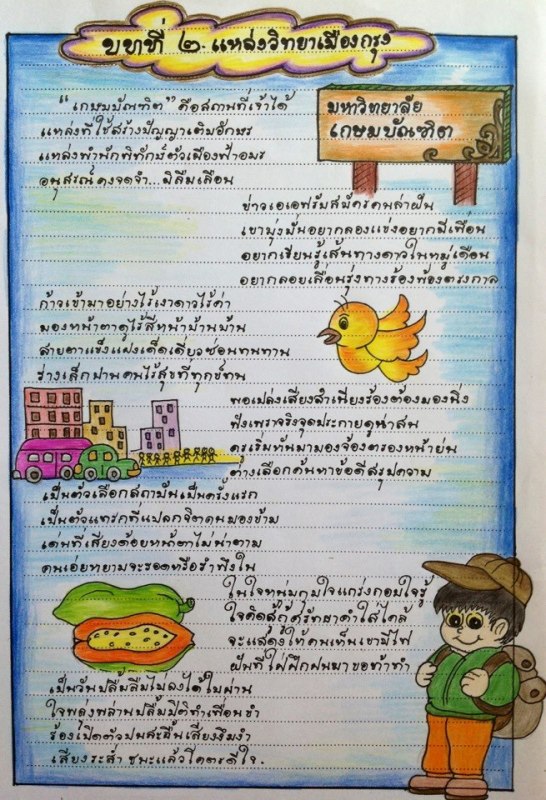 บทที่ ๒. แหล่งวิทยาเมืองกรุง
มหาวิทยาลัย
เกษมบัณฑิต
"เกษมบัณฑิต" คือสถานที่เข้าได้
แหล่งที่ใช้สร้างปัญญาเติมอักษร
แหล่งพำนักพิทักษ์ตัวเมืองฟ้าอมร
อนุสรณ์คงจดจำ...มิลืมเลือน
ข่าวเอเอฟรับสมัครคนล่าฝัน
เขามุ่งมั่นอยากลองแข่งอยากมีเพื่อน
อยากเรียนรู้เส้นทางดาวในหมู่เดือน
อยากลอยเลื่อนรุ่งทางร้องฟ้องตรงกาล
ก้าวเข้ามาอย่างไร้เงาดาวไร้ค่า
มองหน้าตาดูไร้สีหน้าบ้านบ้าน
สายตาแข็งแฝงเด็ดเดี่ยวซ่อนทนทาน
ร่างเล็กผ่านคนไร้สุขที่ทุกข์ทน
พอเปล่งเสียงสำเนียงร้องต้องมองนิ่ง
ฟังเพราะจริงจุดประกายดูน่าสน
ครูเริ่มหันมามองจ้องตรองหน้าย่น
ต่างเลือกค้นหาข้อดีสรุปความ
เป็นตัวเลือกสถาบันเป็นครั้งแรก
เป็นตัวแทรกที่แปลกจิตคนมองข้าม
เด่นที่เสียงด้อยหน้าตาไม่น่าตาม
คนเอ่ยหยามจะรอดหรือรำพึงใน
ในใจหนุ่มกุมใจแกร่งกอมใจรู้
ใจคิดสู้กู้ศรัทธาคำใส่ไคล้
จะแสดงให้คนเห็นเขามีไฟ
ฝันที่ใฝ่ฝึกฝนมาขอท้าทำ
เป็นวันปลื้มลืมไม่ลงได้ใบผ่าน
ใจพลุ่งพล่านปลื้มปีติทำเพื่อนขำ
ร้องเปิดตัวปนสะอื้นเสียงงึมงำ
เสียงระส่ำ ชนะแล้วโคตรดีใจ.